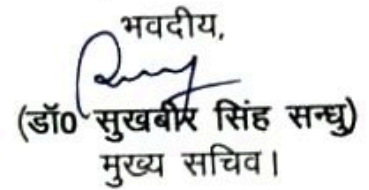 भवदीय,
(डॉ0 सुखबीर सिंह सन्धु)
मुख्य सचिव।